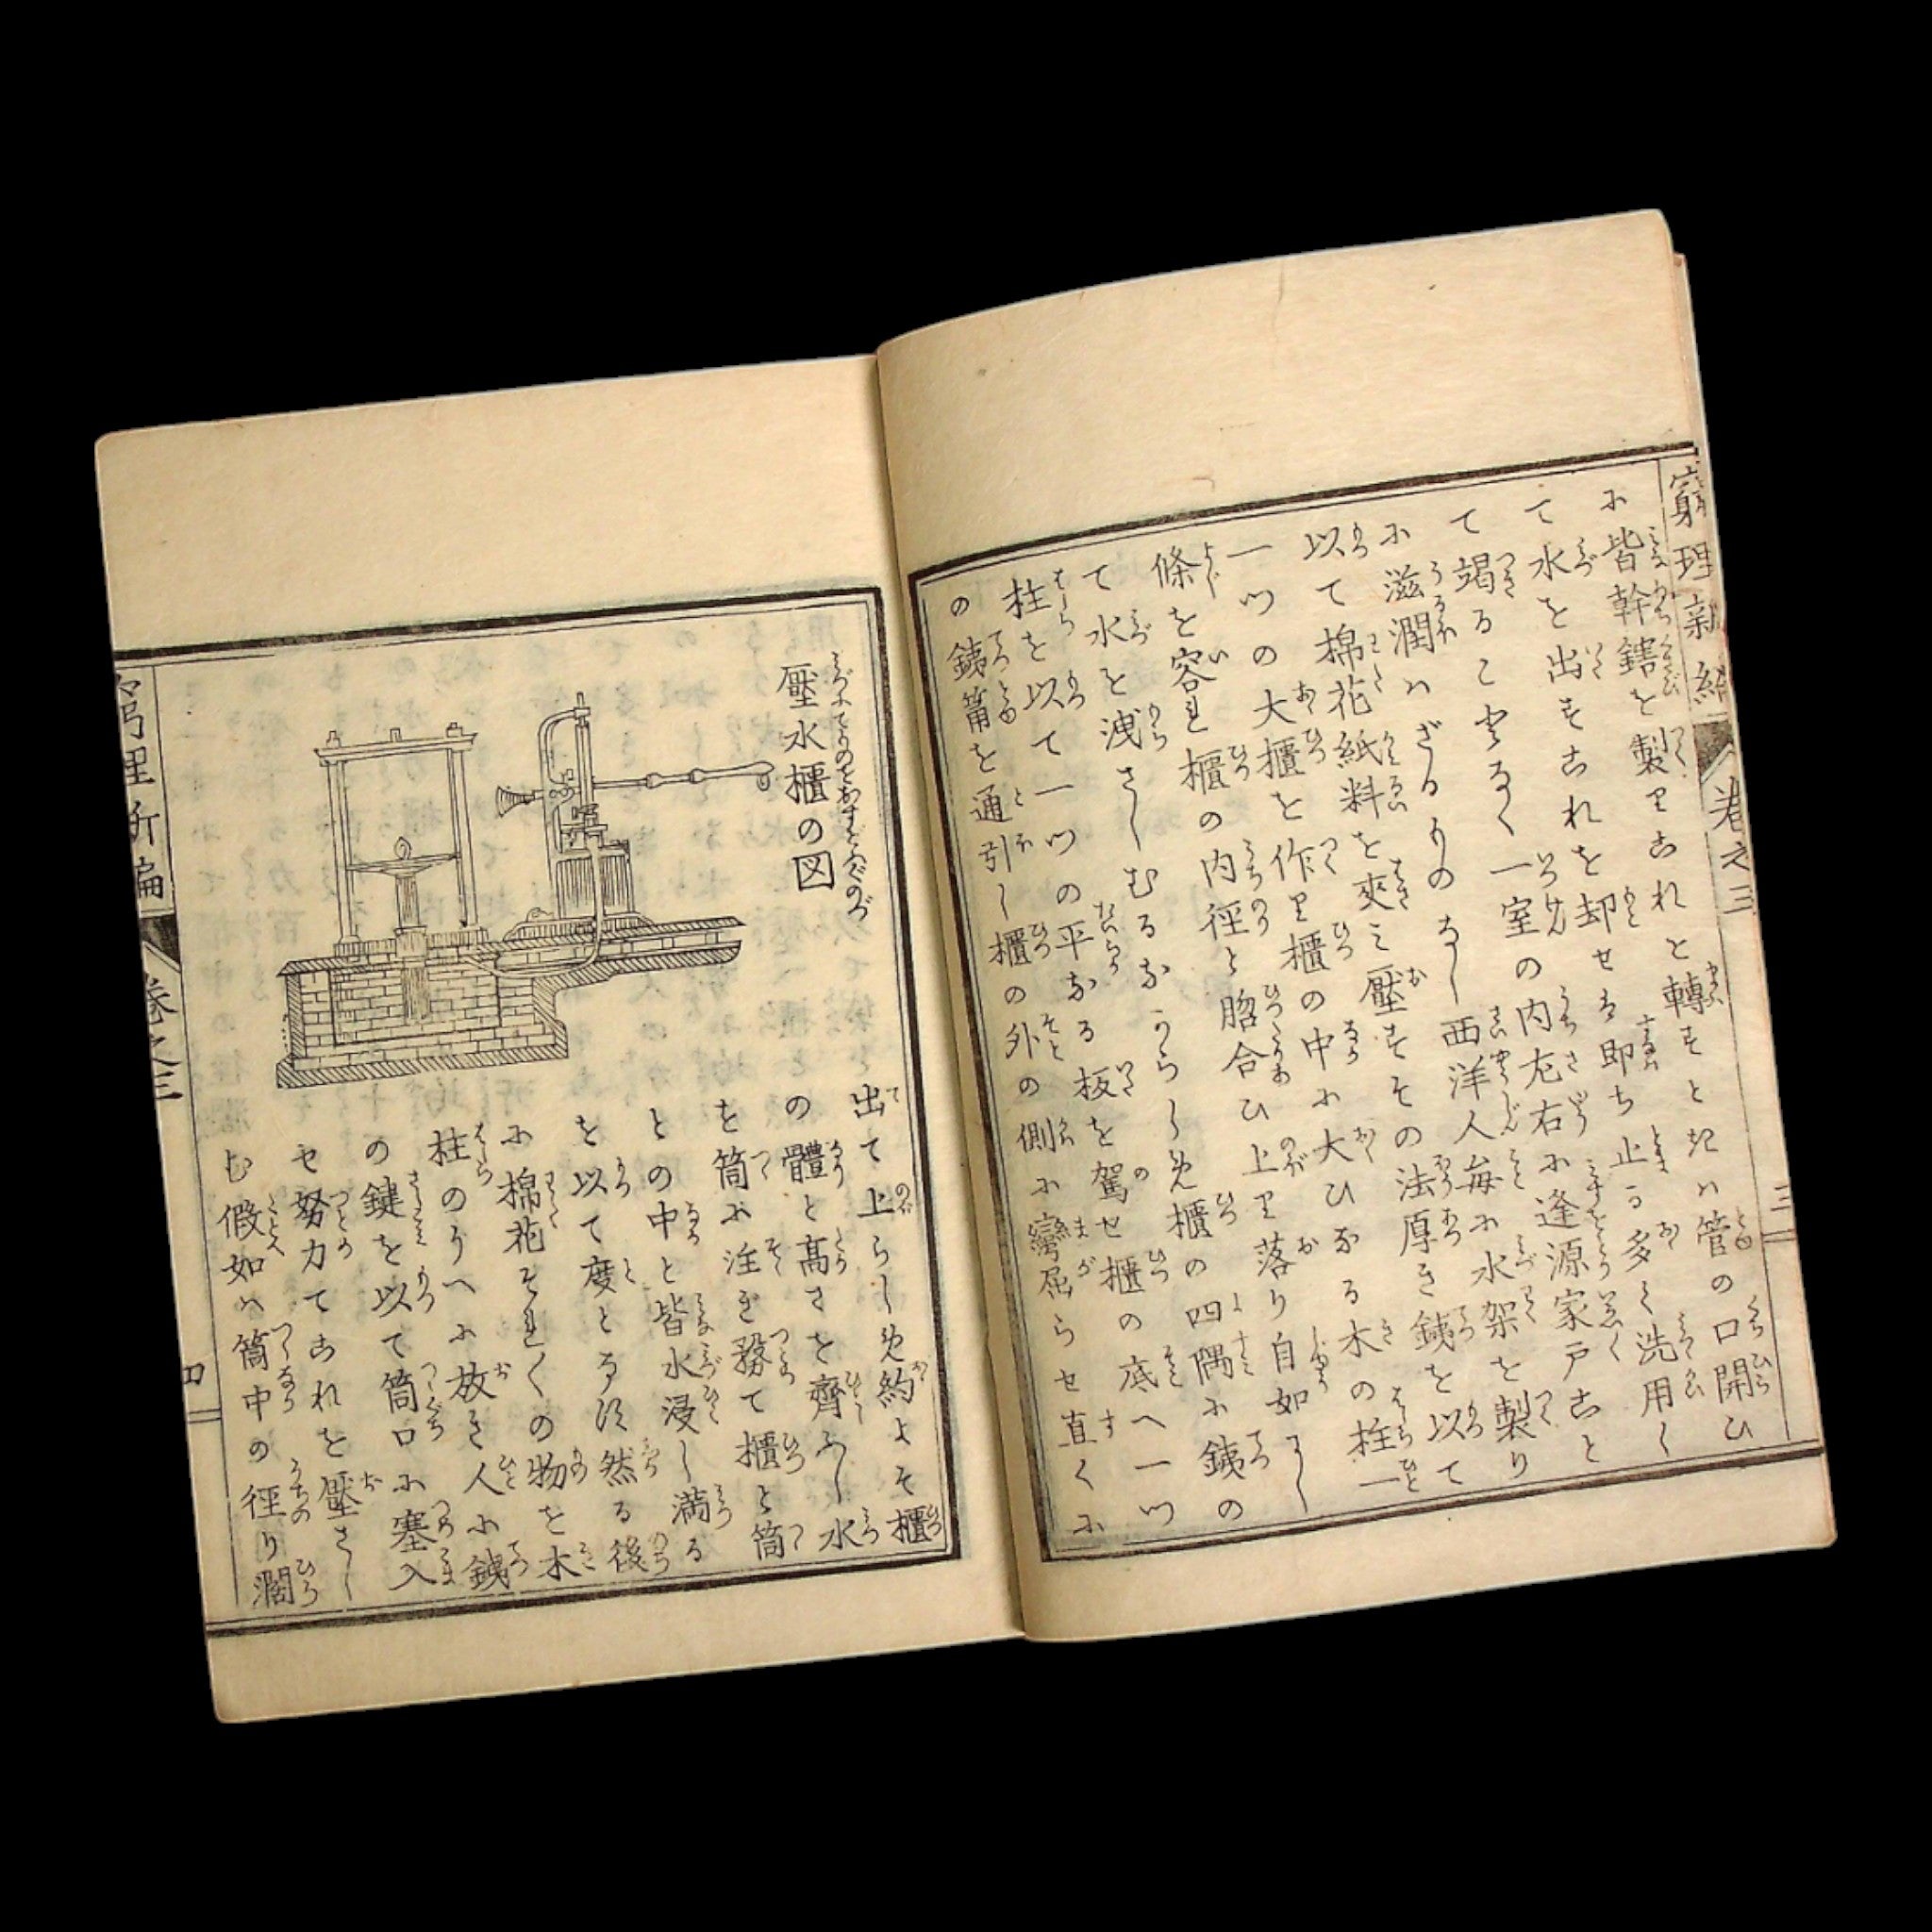 窮理新編 巻之三 三
に皆幹鎋を製りこれを轉すときハ管の口開ひ
て水を出すこれを却せば即ち止る多く洗用し
て竭ることなく一室の内左右に逢源家戸こと
に滋潤ハざるものなし西洋人毎に水架を製り
以て棉花紙料を夾み壓すその法厚き銕を以て
一ツの大櫃を作り櫃の中に大ひなる木の柱一
條を容れ櫃の内径と脗合ひ上り落り自如にし
て水を洩さしむるなからしめ櫃の四隅に銕の
柱を以て一ツの平なる板を駕せ櫃の底へ一ツ
の銕筩を通引し櫃の外の側に彎屈らせ直くに
壓水櫃の図
出て上らしめ約よそ櫃
の體と高さを齊ふし水
を筒に注ぎ務て櫃と筒
との中と皆水浸し満る
を以て度とるす然る後
に棉花それ〳〵の物を木
柱のうへに放き人に銕
の鍵を以て筒口に塞入
せ努力てこれを壓さし
む假如ハ筒中の徑り濶
窮理新編 巻之三 四